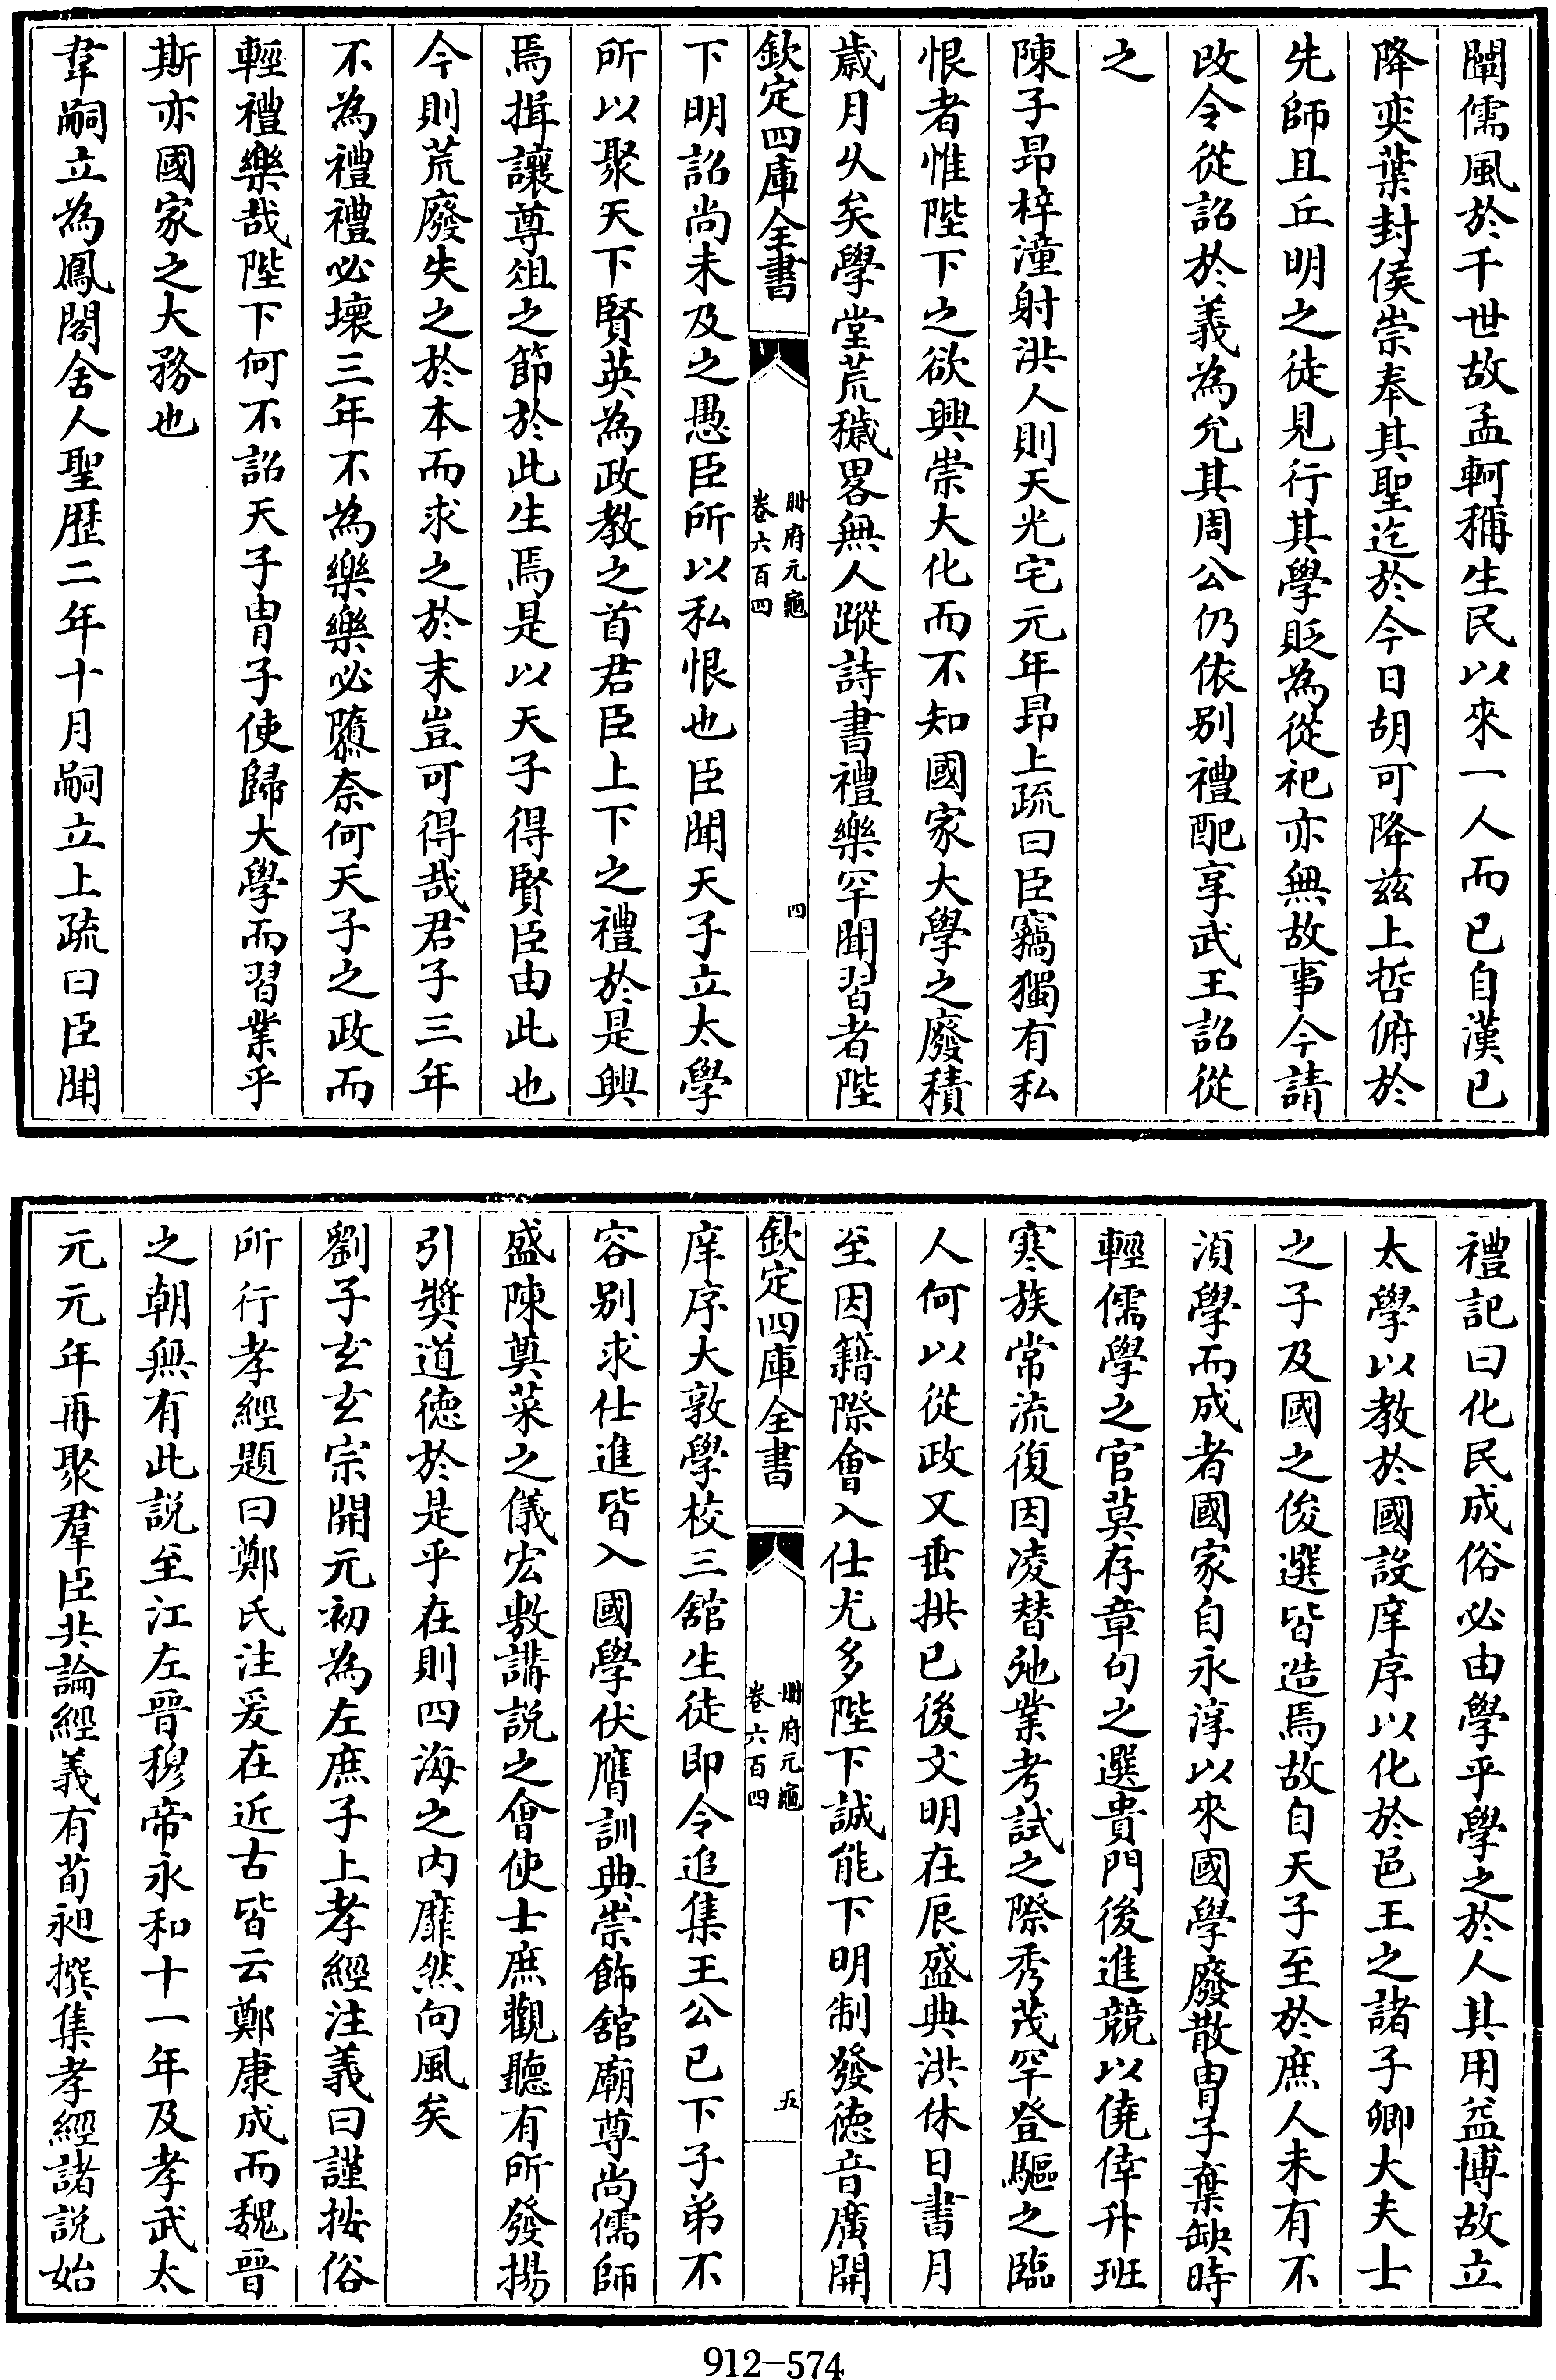 闡儒風於千世故孟軻稱生民以來一人而已自漢已
降奕葉封侯崇奉其聖迄於今日胡可降茲上哲俯於
先師且丘明之徒見行其學貶為從祀亦無故事今請
改令從詔於義為允其周公仍依別禮配享武王詔從
之
陳子昂梓潼射洪人則天光宅元年昂上疏曰臣竊獨有私
恨者惟陛下之欲興崇大化而不知國家大學之廢積
歲月乆矣學堂荒穢畧無人蹤詩書禮樂罕聞習者陛
欽定四庫全書
冊府元龜
卷六百四
四
下明詔尚未及之愚臣所以私恨也臣聞天子立太學
所以聚天下賢英為政教之首君臣上下之禮於是興
焉揖讓尊俎之節於此生焉是以天子得賢臣由此也
今則荒廢失之於本而求之於末豈可得哉君子三年
不為禮禮必壞三年不為樂樂必隳奈何天子之政而
輕禮樂哉陛下何不詔天子胄子使歸大學而習業乎
斯亦國家之大務也
韋嗣立為鳳閣舍人聖歷二年十月嗣立上疏曰臣聞
禮記曰化民成俗必由學乎學之於人其用益博故立
太學以教於國設庠序以化於邑王之諸子卿大夫士
之子及國之俊選皆造焉故自天子至於庶人未有不
湏學而成者國家自永淳以來國學廢散胄子棄缺時
輕儒學之官莫存章句之選貴門後進競以僥倖升班
寒族常流復因凌替弛業考試之際秀茂罕登驅之臨
人何以從政又垂拱已後文明在辰盛典洪休日書月
至因籍際會入仕尤多陛下誠能下明制發德音廣開
欽定四庫全書
冊府元龜
卷六百四
五
庠序大敦學校三舘生徒即令追集王公已下子弟不
容別求仕進皆入國學伏膺訓典崇飾舘廟尊尚儒師
盛陳奠菜之儀宏敷講説之會使士庶觀聽有所發揚
引奬道德於是乎在則四海之內靡然向風矣
劉子玄玄宗開元初為左庶子上孝經注義曰謹按俗
所行孝經題曰鄭氏注爰在近古皆云鄭康成而魏晉
之朝無有此説至江左晉穆帝永和十一年及孝武太
元元年再聚羣臣共論經義有荀昶撰集孝經諸説始
912-574